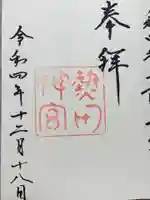 奉拝
熱田
神宮
令和四年十二月十八日